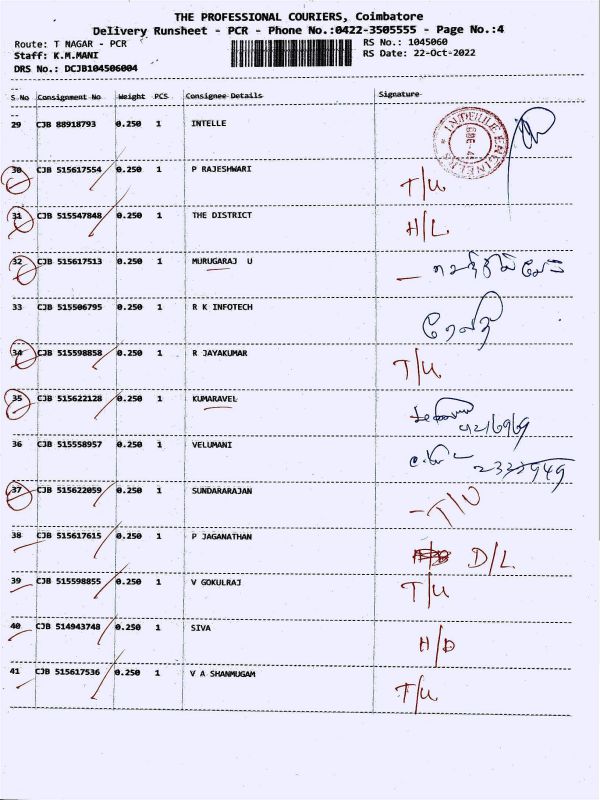 THE PROFESSIONAL COURIERS, Coimbatore
Delivery Runsheet - PCR - Phone No.:0422-3505555 - Page No.:4
Route: T NAGAR - PCR RS No.: 1045060
Staff: K.M.MANI RS Date: 22-Oct-2022
DRS No.: DCJB104506004
S No Consignment No Weight PCS Consignee Details Signature
29 CJB 88918793 0.250 1 INTELLE
30 CJB 515617554 0.250 1 P RAJESHWARI T/U
31 CJB 515547848 0.250 1 THE DISTRICT H/L
32 CJB 515617513 0.250 1 MURUGARAJ U
33 CJB 515506795 0.250 1 R K INFOTECH
34 CJB 515598858 0.250 1 R JAYAKUMAR T/U
35 CJB 515622128 0.250 1 KUMARAVEL
36 CJB 515558957 0.250 1 VELUMANI
37 CJB 515622059 0.250 1 SUNDARARAJAN - T/U
38 CJB 515617615 0.250 1 P JAGANATHAN D/L
39 CJB 515598855 0.250 1 V GOKULRAJ T/U
40 CJB 514943748 0.250 1 SIVA H/D
41 CJB 515617536 0.250 1 V A SHANMUGAM T/U